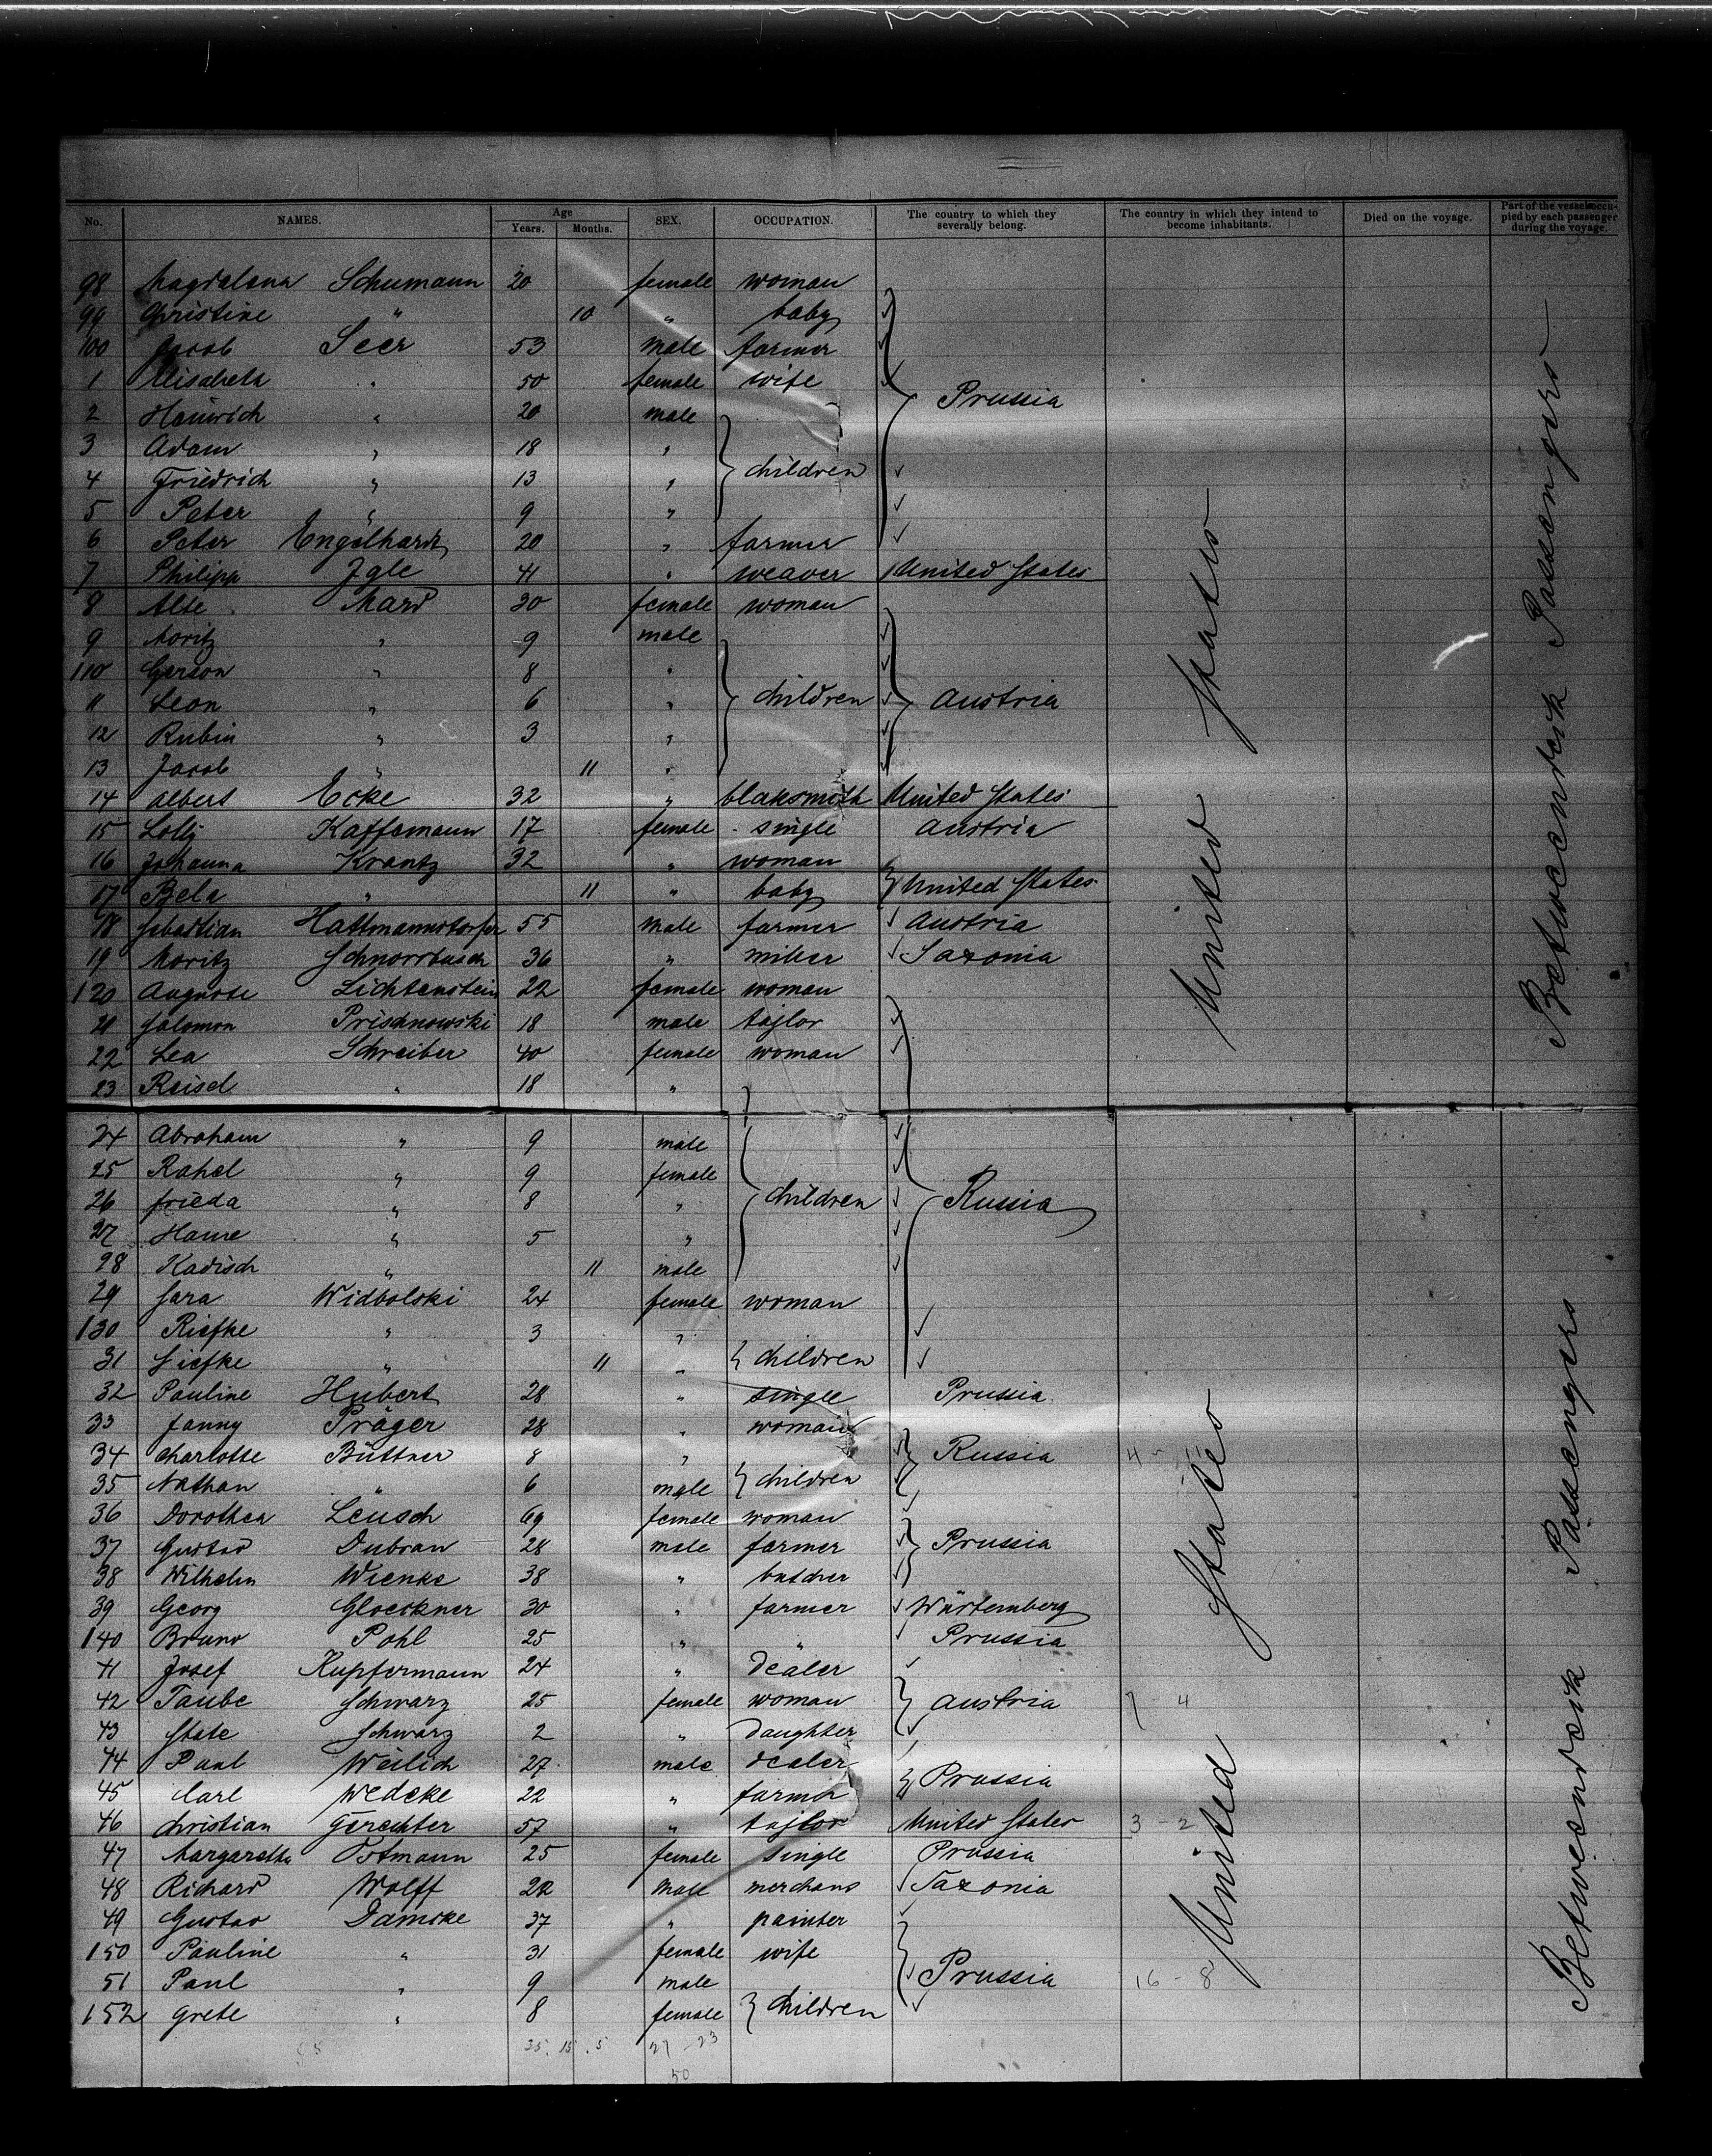 No. NAMES. Age Years. Months. SEX. OCCUPATION. The country to which they severally belong. The country in which they intend to become inhabitants. Died on the voyage. Part of the vessel occupied by each passenger during the voyage.
98 Magdalena Schumann 20 female woman
99 Christine " 10 " baby
100 Jacob Seer 53 male farmer
1 Elisabeta " 50 female wife Prussia
2 Heinrich " 20 male
3 Adam " 18 "
4 Friedrich " 13 " children
5 Peter " 9 "
6 Peter Engelhardt 20 " farmer
7 Philipp Igle 41 " weaver United States
8 Alte Mard 30 female woman
9 Moritz " 9 male
110 Gerson " 8 "
11 Leon " 6 " children Austria
12 Rubin " 3 "
13 Jacob " 11 "
14 Albert Ecke 32 " blaksmith United States
15 Lolly Kaffemann 17 female single Austria
16 Johanna Krantz 32 " woman
17 Bela " 11 " baby United States
18 Sebastian Hattmannstorfer 55 male farmer Austria
19 Moritz Schnorrbusch 36 " miller Saxonia
120 Auguste Lichtenstein 22 female woman
21 Salomon Prischnowski 18 male taylor
22 Lea Schreiber 40 female woman
23 Reisel " 18 "
24 Abraham " 9 male
25 Rahel " 9 female
26 Frieda " 8 " children Russia
27 Hame " 5 "
28 Kadisch " 11 male
29 Sara Widbolski 24 female woman
130 Riefke " 3 "
31 Liefke " 11 " children
32 Pauline Hubert 28 " single Prussia
33 Fanny Präger 28 " woman
34 Charlotte Büttner 8 " Russia 4 - 11
35 Nathan " 6 male children
36 Dorothea Leusch 69 female woman
37 Gustav Dubran 28 male farmer Prussia
38 Wilhelm Wienke 38 " butcher
39 Georg Gloeckner 30 " farmer Würtemberg
140 Bruno Pohl 25 " " Prussia
41 Josef Kupfermann 24 " dealer
42 Taube Schwarz 25 female woman Austria 7 - 4
43 State Schwarz 2 " daughter
44 Paul Weilich 27 male dealer
45 Carl Wedeke 22 " farmer Prussia
46 Christian Gerechter 57 " taylor United States 3 - 2
47 Margaretha Ostmann 25 female single Prussia
48 Richard Wolff 22 male merchant Saxonia
49 Gustav Damske 37 " painter
150 Pauline " 31 female wife
51 Paul " 9 male Prussia 16 - 8
152 Grete " 8 female children
35. 15. 5 27 - 23
50
United States
Betweendeck Passengers
United States
Betweendeck Passengers